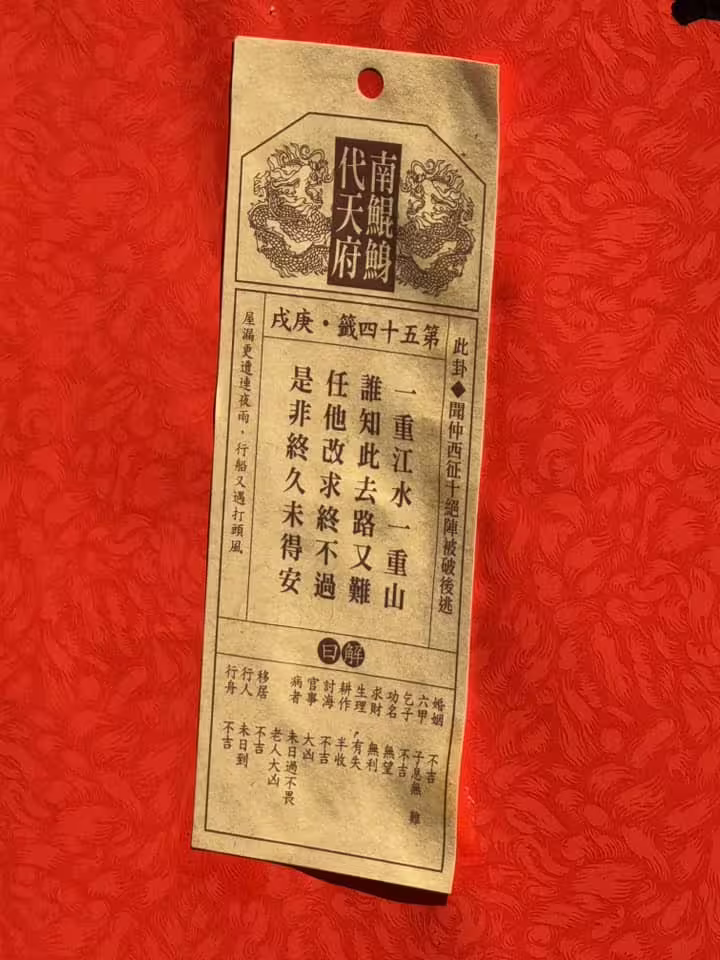 南鯤鯓
代天府
第五十四籤・庚戌
此卦◆聞仲西征十絕陣被破後逃
一重江水一重山
誰知此去路又難
任他改求終不過
是非終久未得安
屋漏更遭連夜雨，行船又遇打頭風
解曰
婚姻 不吉
六甲 子息無 難
乞子 不吉
功名 無望
求財 無利
生理 有失
耕作 半收
討海 不吉
官事 大凶
病者 未日過不畏
老人大凶
移居 不吉
行人 未日到
行舟 不吉